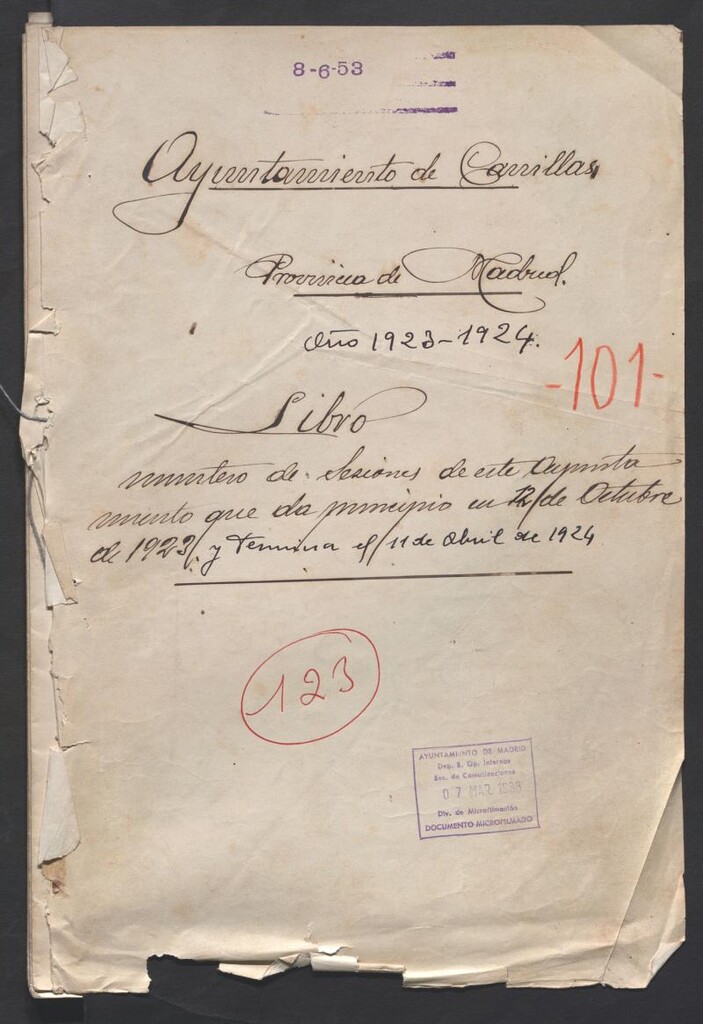 8-6-53
Ayuntamiento de Canillas
Provincia de Madrid.
Año 1923-1924.
-101-
Libro
de Sesiones de este Ayunta
miento que da principio en 12 de Octubre
de 1923, y Termina el 11 de Abril de 1924
123
AYUNTAMIENTO DE MADRID
Dep. S. Op. Internos
Sec. de Comunicaciones
07 MAR
Div. de Microfilmación
DOCUMENTO MICROFILMADO